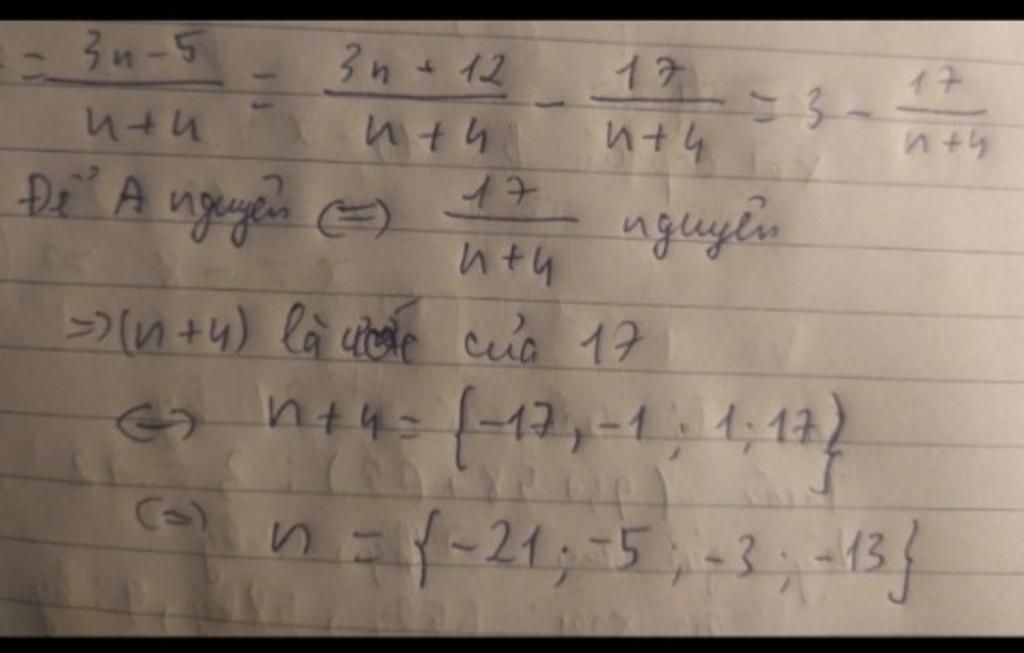 = 3n - 5 / n + 4 = 3n + 12 / n + 4 - 17 / n + 4 = 3 - 17 / n + 4
Để A nguyên (=) 17 / n + 4 nguyên
=> (n + 4) là ước của 17
<=> n + 4 = {-17; -1; 1; 17}
(=) n = {-21; -5; -3; -13}